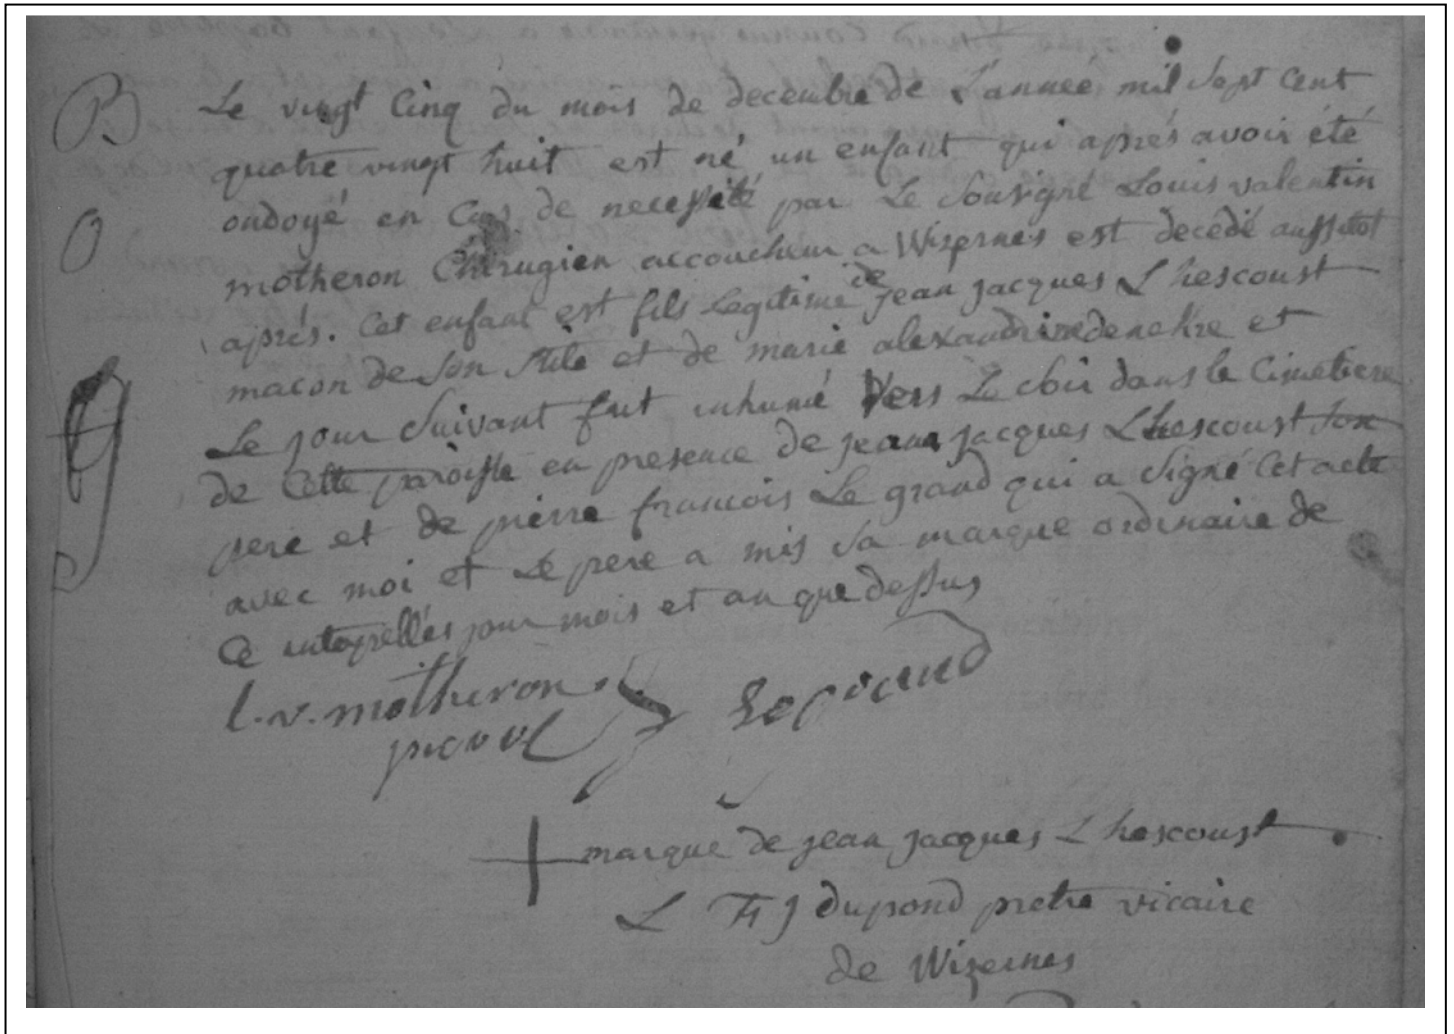 B
O
Le vingt Cinq du mois de decembre de L'année mil sept cent
quatre vingt huit est né un enfant qui aprés avoir été
ondoyé en Cas de necessité par Le sousigné Louis valentin
motheron Chirugien accoucheur a Wizernes est decédé aussitot
aprés. Cet enfant est fils Legitime de jean jacques Lhescoust
macon de son stile et de marie alexandrine et
Le jour suivant fut inhumé vers Le soir dans le Cimetiere
de Cette paroisse en presence de jean jacques Lhescoust son
pere et de pierre francois Le grand qui a signé Cet acte
avec moi et Le pere a mis sa marque ordinaire de
Ce interpellés jour mois et an que dessus
l. v. motheron Legrand
marque de jean jacques Lhescoust
L F J dupond pretre vicaire
de Wizernes